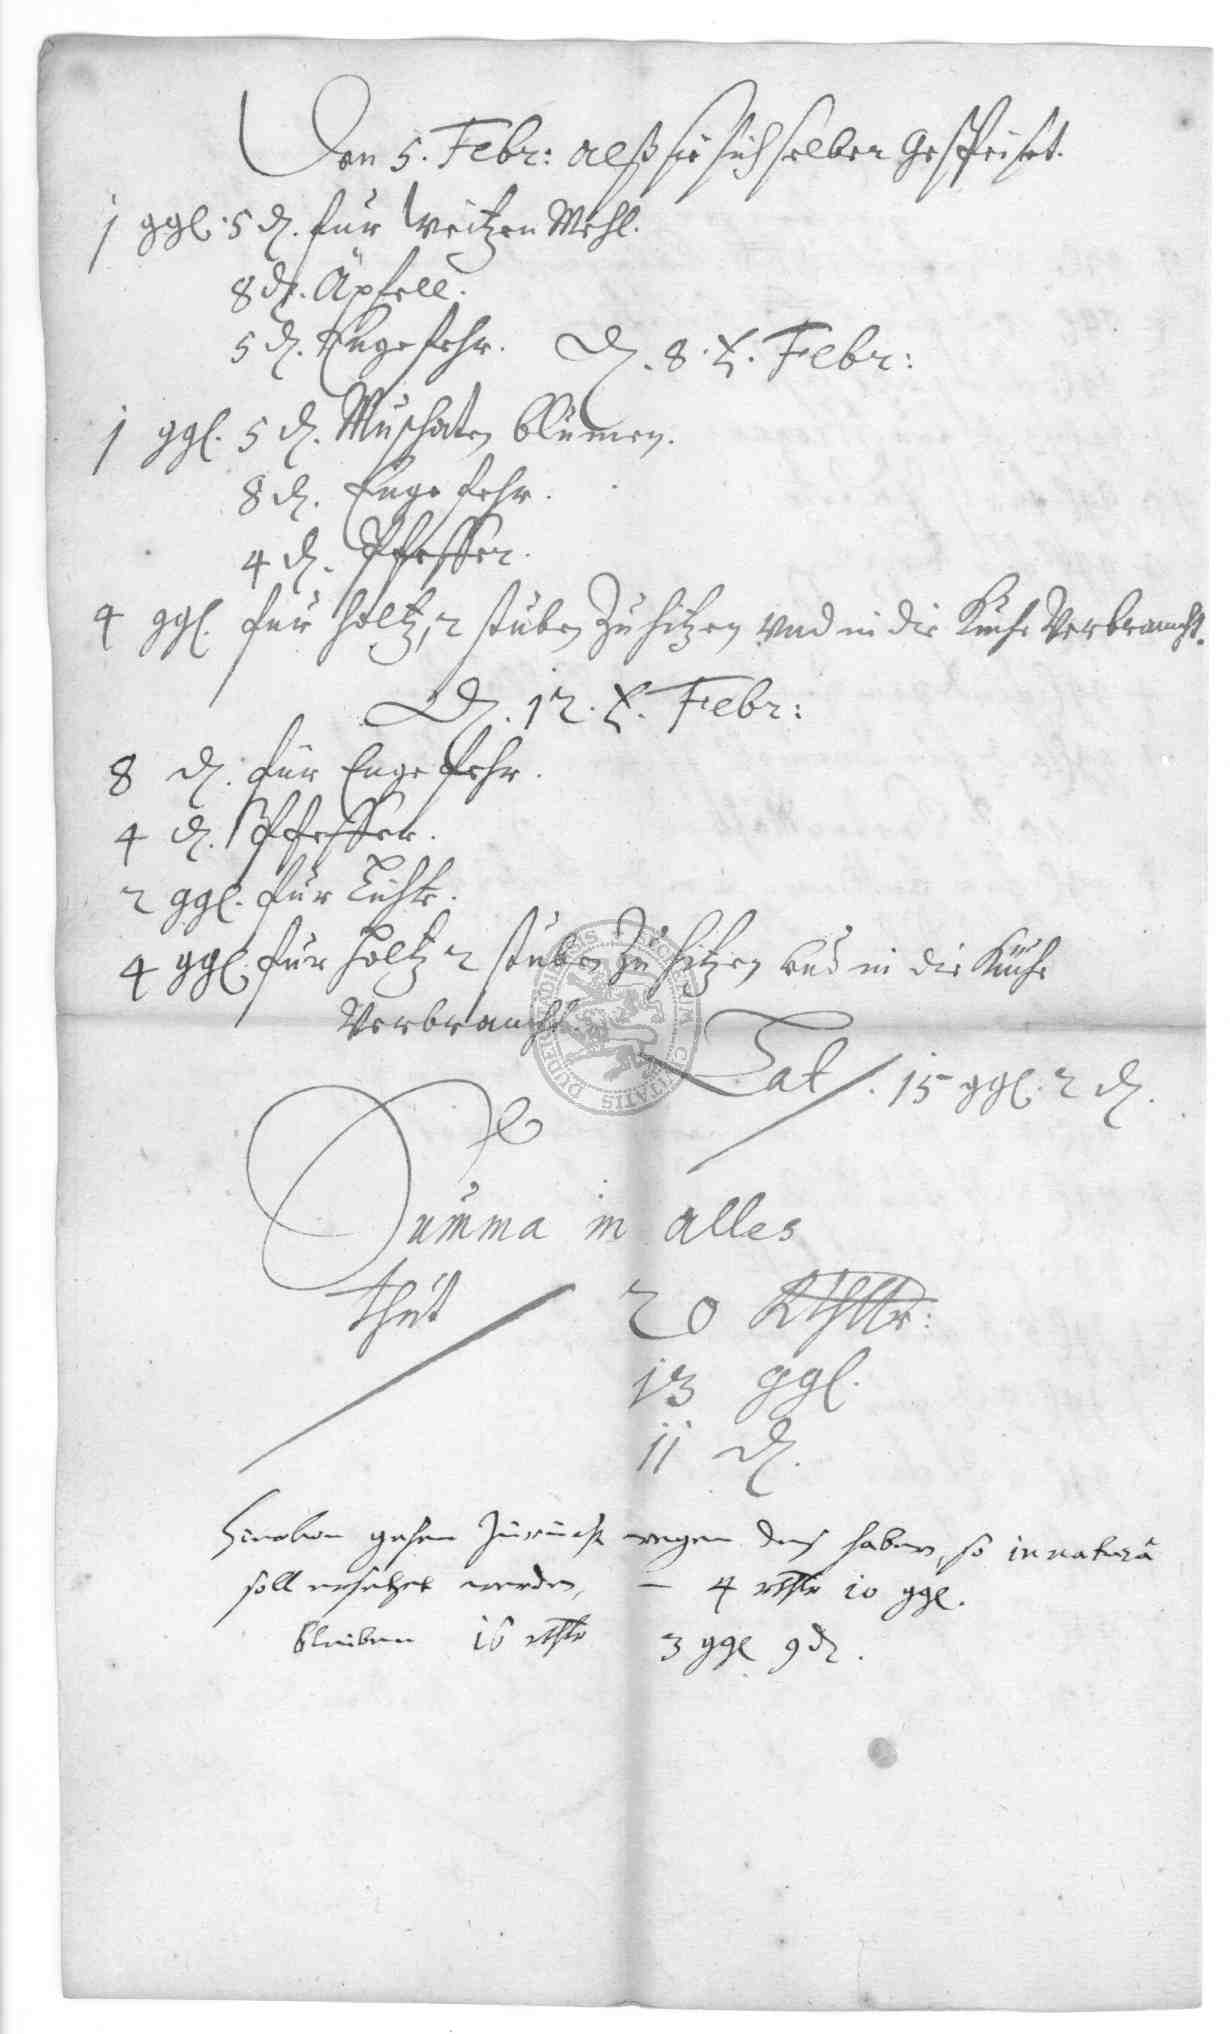 Den 5. Febr: alß sie sich selber gespeiset.
1 ggl. 5 d. fur weitzen Mehl.
8 d. Äpfell.
5 d. Engefehr. D. 8. t. Febr:
1 ggl. 5 d. Muschaten blumen.
8 d. Engefehr.
4 d. Pfeffer.
4 ggl. fur holtz, 2 stuben zu hitzen vnd in die Kuche Verbraucht.
D. 12. t. Febr:
8 d. fur Engefehr.
4 d. Pfeffer.
2 ggl. fur Licht.
4 ggl. fur holtz 2 stuben zu hitzen vnd in die Küche
Verbraucht.
Lat. 15 ggl. 2 d.
Summa in alles
thut 20 Rthllr:
13 ggl.
11 d.
Hieruon gehen zurück wegen deß habern, so in naturâ
soll ersetzet werden, — 4 rthlr 10 ggl.
bleiben 16 rthlr 3 ggl 9 d.
SECRETUM CIVITATIS DUDERSTADIENSIS